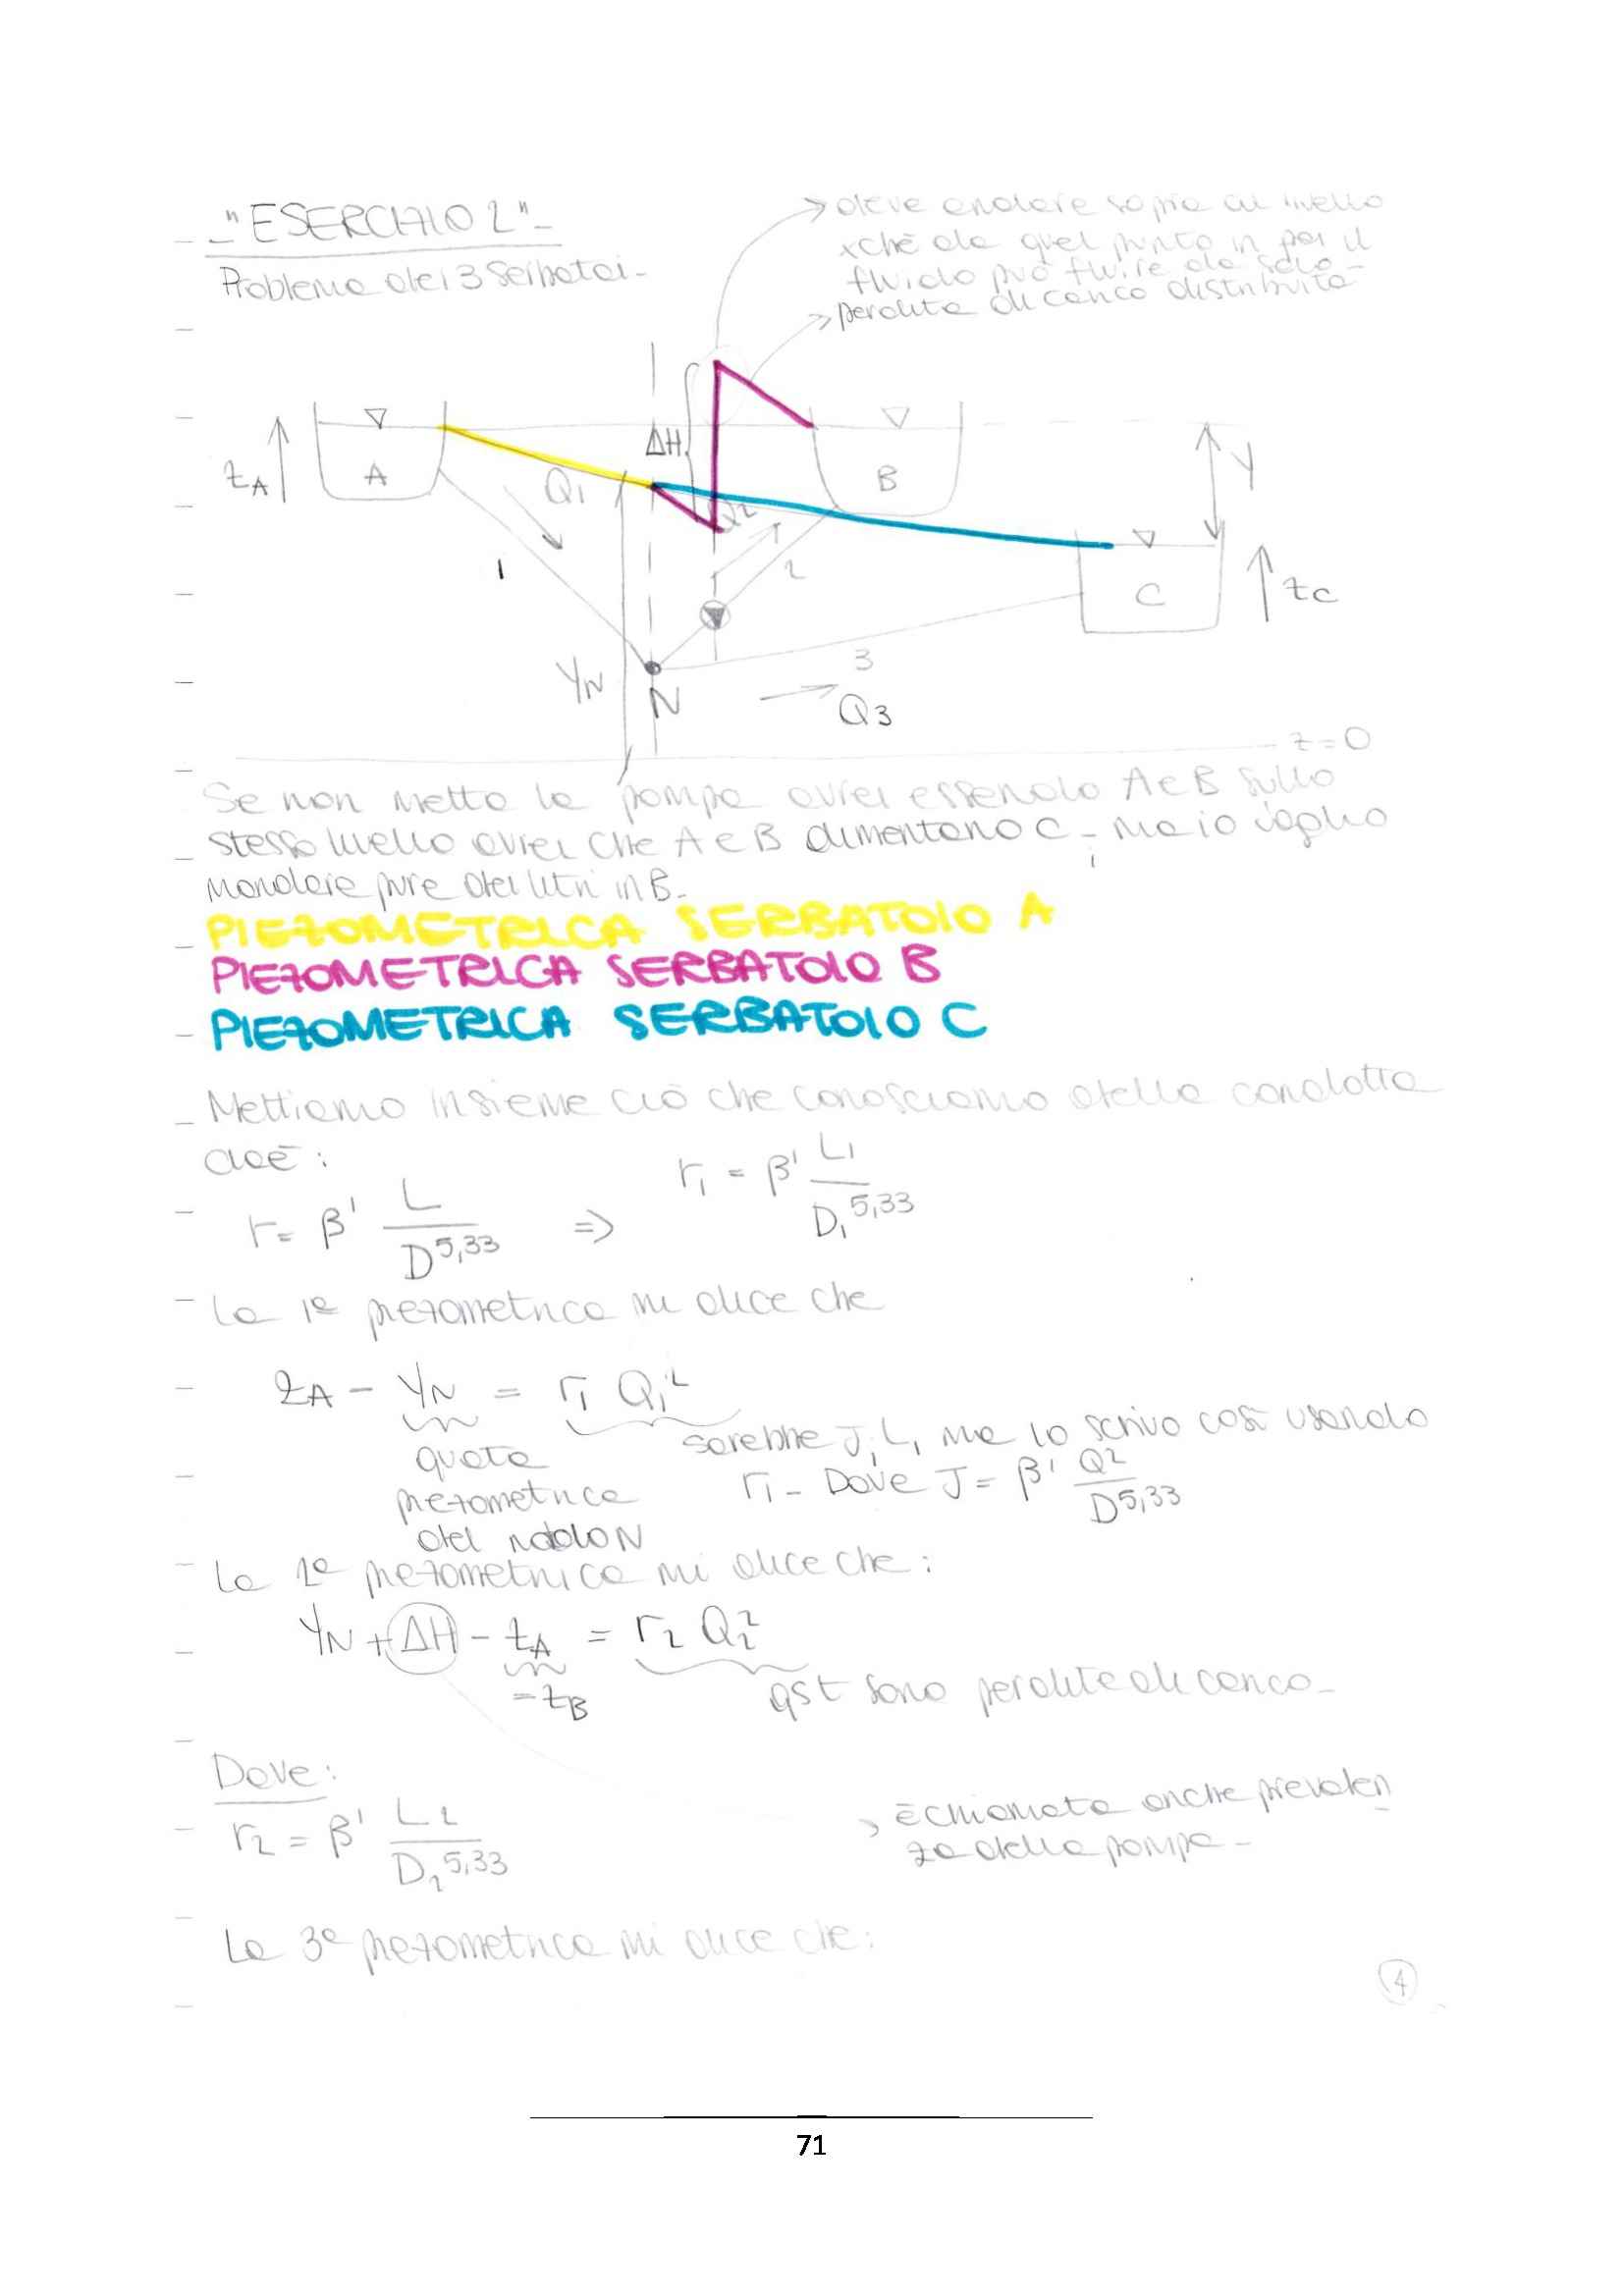 "ESERCIZIO 2"-
Problema dei 3 Serbatoi-
→ deve andare sopra al livello
xchè da quel punto in poi il
fluido può fluire da solo-
→ perdita di carico distribuita
ΔH
zA
A
Q1
B
Y
Q2
1
2
C
zC
3
YN
N
Q3
z=0
Se non metto la pompa avrei essendo A e B sullo
stesso livello avrei che A e B alimentano C, ma io voglio
mandare pure dei litri in B-
PIEZOMETRICA SERBATOIO A
PIEZOMETRICA SERBATOIO B
PIEZOMETRICA SERBATOIO C
Mettiamo insieme ciò che conosciamo della condotta
cioè:
r = β' L / D^5,33 ⇒ r1 = β' L1 / D1^5,33
La 1a piezometrica mi dice che
zA - YN = r1 Q1²
quota
piezometrica
del nodo N
sarebbe J1L1 ma lo scrivo così usando
r1- Dove J = β' Q² / D^5,33
La 2a piezometrica mi dice che:
YN + ΔH - zA = r2 Q2²
= zB
qst sono perdite di carico-
Dove:
r2 = β' L2 / D2^5,33
è chiamata anche prevalen
za della pompa-
La 3a piezometrica mi dice che:
4
71